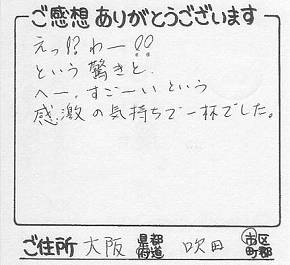 ご感想ありがとうございます
えっ!?わー!!
という驚きと、
へー、すごーいという
感激の気持ちで一杯でした。
ご住所 大阪 都道府県 吹田 市区町郡